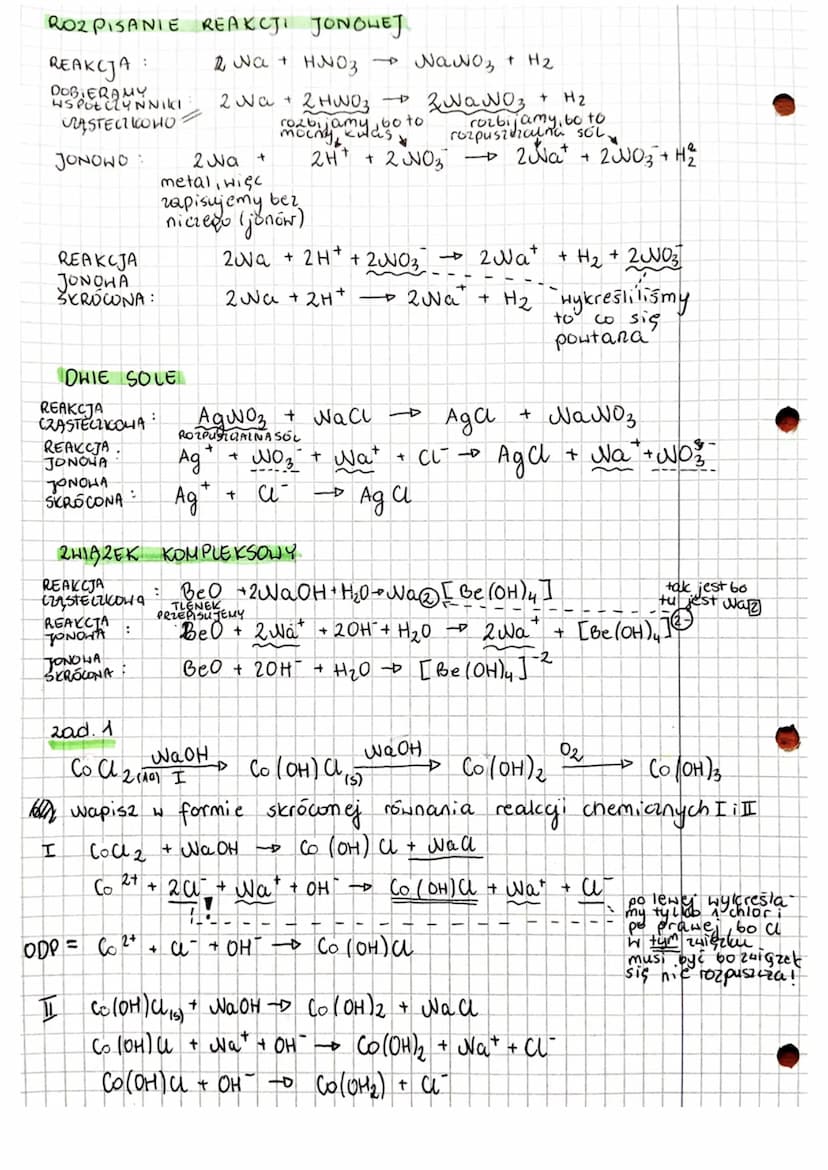 ROZPISANIE REAKCJI JONOWEJ
REAKCJA : 2 Na + HNO₃ → NaNO₃ + H₂
DOBIERAMY
WSPÓŁCZYNNIKI : 2 Na + 2HNO₃ → 2NaNO₃ + H₂
CZĄSTECZKOWO rozbijamy, bo to mocny kwas rozbijamy, bo to rozpuszczalna sól
JONOWO : 2Na + 2H⁺ + 2NO₃⁻ → 2Na⁺ + 2NO₃⁻ + H₂
metal, więc
zapisujemy bez
niczego (jonów)
REAKCJA 2Na + 2H⁺ + 2NO₃⁻ → 2Na⁺ + H₂ + 2NO₃⁻
JONOWA
SKRÓCONA : 2Na + 2H⁺ → 2Na⁺ + H₂ wykreśliliśmy
to co się
powtarza
DWIE SOLE
REAKCJA
CZĄSTECZKOWA : AgNO₃ + NaCl → AgCl + NaNO₃
ROZPUSZCZALNA SÓL
REAKCJA
JONOWA : Ag⁺ + NO₃⁻ + Na⁺ + Cl⁻ → AgCl + Na⁺ + NO₃⁻
JONOWA
SKRÓCONA : Ag⁺ + Cl⁻ → AgCl
ZWIĄZEK KOMPLEKSOWY
REAKCJA
CZĄSTECZKOWA : BeO + 2NaOH + H₂O → Na₂[Be(OH)₄] tak jest bo
tu jest Na₂
TLENEK
PRZEPISUJEMY
REAKCJA
JONOWA : BeO + 2Na⁺ + 2OH⁻ + H₂O → 2Na⁺ + [Be(OH)₄]²⁻
JONOWA
SKRÓCONA : BeO + 2OH⁻ + H₂O → [Be(OH)₄]⁻²
zad. 1
NaOH NaOH O₂
CoCl₂(aq) → Co(OH)Cl(s) → Co(OH)₂ → Co(OH)₃
I
Napisz w formie skróconej równania reakcji chemicznych I i II
I CoCl₂ + NaOH → Co(OH)Cl + NaCl
Co²⁺ + 2Cl⁻ + Na⁺ + OH⁻ → Co(OH)Cl + Na⁺ + Cl⁻
!
po lewej wykreśla-
my tylko 1 chlor i
po prawej, bo Cl
w tym związku
musi być bo związek
się nie rozpuszcza!
ODP = Co²⁺ + Cl⁻ + OH⁻ → Co(OH)Cl
II Co(OH)Cl(s) + NaOH → Co(OH)₂ + NaCl
Co(OH)Cl + Na⁺ + OH⁻ → Co(OH)₂ + Na⁺ + Cl⁻
Co(OH)Cl + OH⁻ → Co(OH₂) + Cl⁻